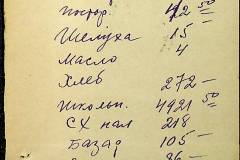 постор. 42 50
Шелуха 15 -
Масло 4
Хлеб 272 -
Школьн. 4921 50
СХ нал 218
Базар 105 -
36 -